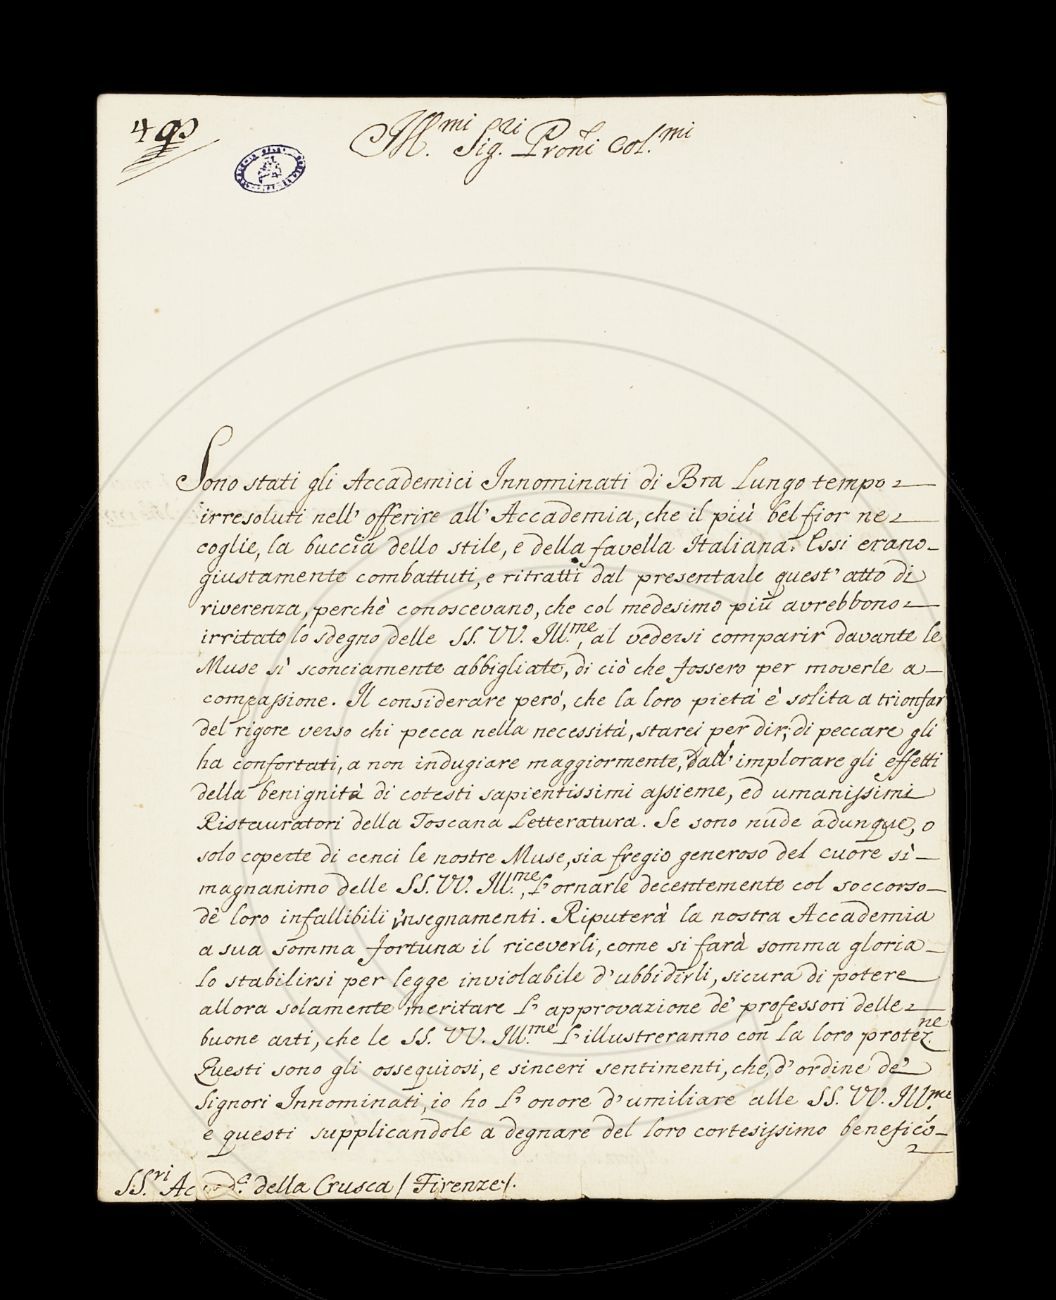 49
Ill.mi Sig.ri Proñi Col.mi
Sono stati gli Accademici Innominati di Bra lungo tempo
irresoluti nell' offerire all' Accademia, che il più bel fior ne
coglie, la buccia dello stile, e della favella Italiana. Essi erano
giustamente combattuti, e ritratti dal presentarle quest' atto di
riverenza, perchè conoscevano, che col medesimo più avrebbono
irritato lo sdegno delle SS. VV. Ill.me, al vedersi comparir davante le
Muse sì sconciamente abbigliate, di ciò che fossero per moverle a
compassione. Il considerare però, che la loro pietà è solita a trionfar
del rigore verso chi pecca nella necessità, starei per dir, di peccare gli
ha confortati, a non indugiare maggiormente, dall' implorare gli effetti
della benignità di cotesti sapientissimi assieme, ed umanissimi
Ristauratori della Toscana Letteratura. Se sono nude adunque, o
solo coperte di cenci le nostre Muse, sia fregio generoso del cuore sì
magnanimo delle SS. VV. Ill.me, l' ornarle decentemente col soccorso
de' loro infallibili insegnamenti. Riputerà la nostra Accademia
a sua somma fortuna il riceverli, come si farà somma gloria
lo stabilirsi per legge inviolabile d' ubbidirli, sicura di potere
allora solamente meritare l' approvazione de' professori delle
buone arti, che le SS. VV. Ill.me l' illustreranno con la loro protez.ne
Questi sono gli ossequiosi, e sinceri sentimenti, che, d' ordine de'
Signori Innominati, io ho l' onore d' umiliare alle SS. VV. Ill.me
e questi supplicandole a degnare del loro cortesissimo benefico
SS.ri della Crusca / Firenze /.